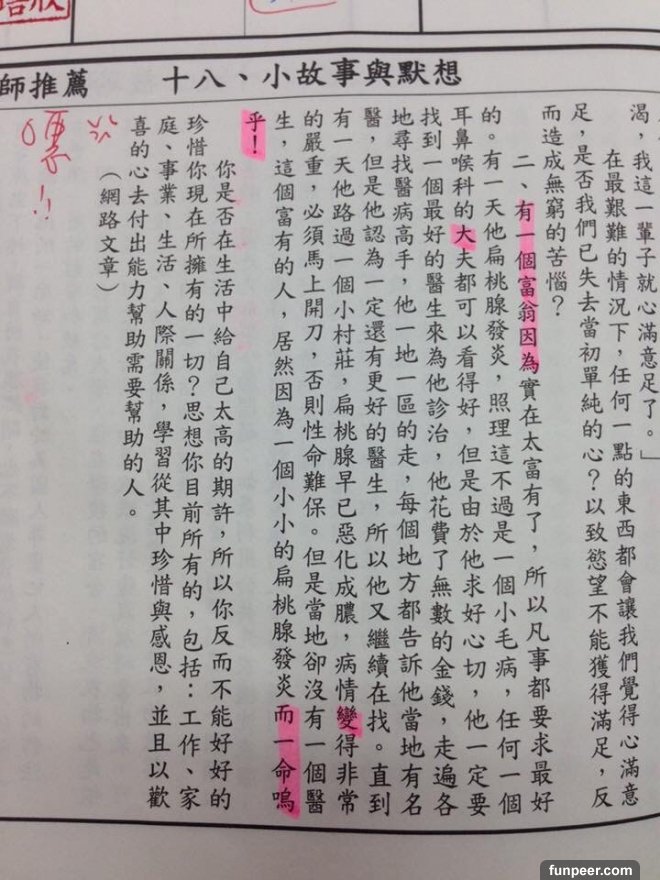 師推薦　十八、小故事與默想
渴，我這一輩子就心滿意足了。」
在最艱難的情況下，任何一點的東西都會讓我們覺得心滿意
足，是否我們已失去當初單純的心？以致慾望不能獲得滿足，反
而造成無窮的苦惱？
二、有一個富翁因為實在太富有了，所以凡事都要求最好
的。有一天他扁桃腺發炎，照理這不過是一個小毛病，任何一個
耳鼻喉科的大夫都可以看得好，但是由於他求好心切，他一定要
找到一個最好的醫生來為他診治，他花費了無數的金錢，走遍各
地尋找醫病高手，他一地一區的走，每個地方都告訴他當地有名
醫，但是他認為一定還有更好的醫生，所以他又繼續在找。直到
有一天他路過一個小村莊，扁桃腺早已惡化成膿，病情變得非常
的嚴重，必須馬上開刀，否則性命難保。但是當地卻沒有一個醫
生，這個富有的人，居然因為一個小小的扁桃腺發炎而一命嗚
乎！
你是否在生活中給自己太高的期許，所以你反而不能好好的
珍惜你現在所擁有的一切？思想你目前所有的，包括：工作、家
庭、事業、生活、人際關係，學習從其中珍惜與感恩，並且以歡
喜的心去付出能力幫助需要幫助的人。
（網路文章）
funpeer.com